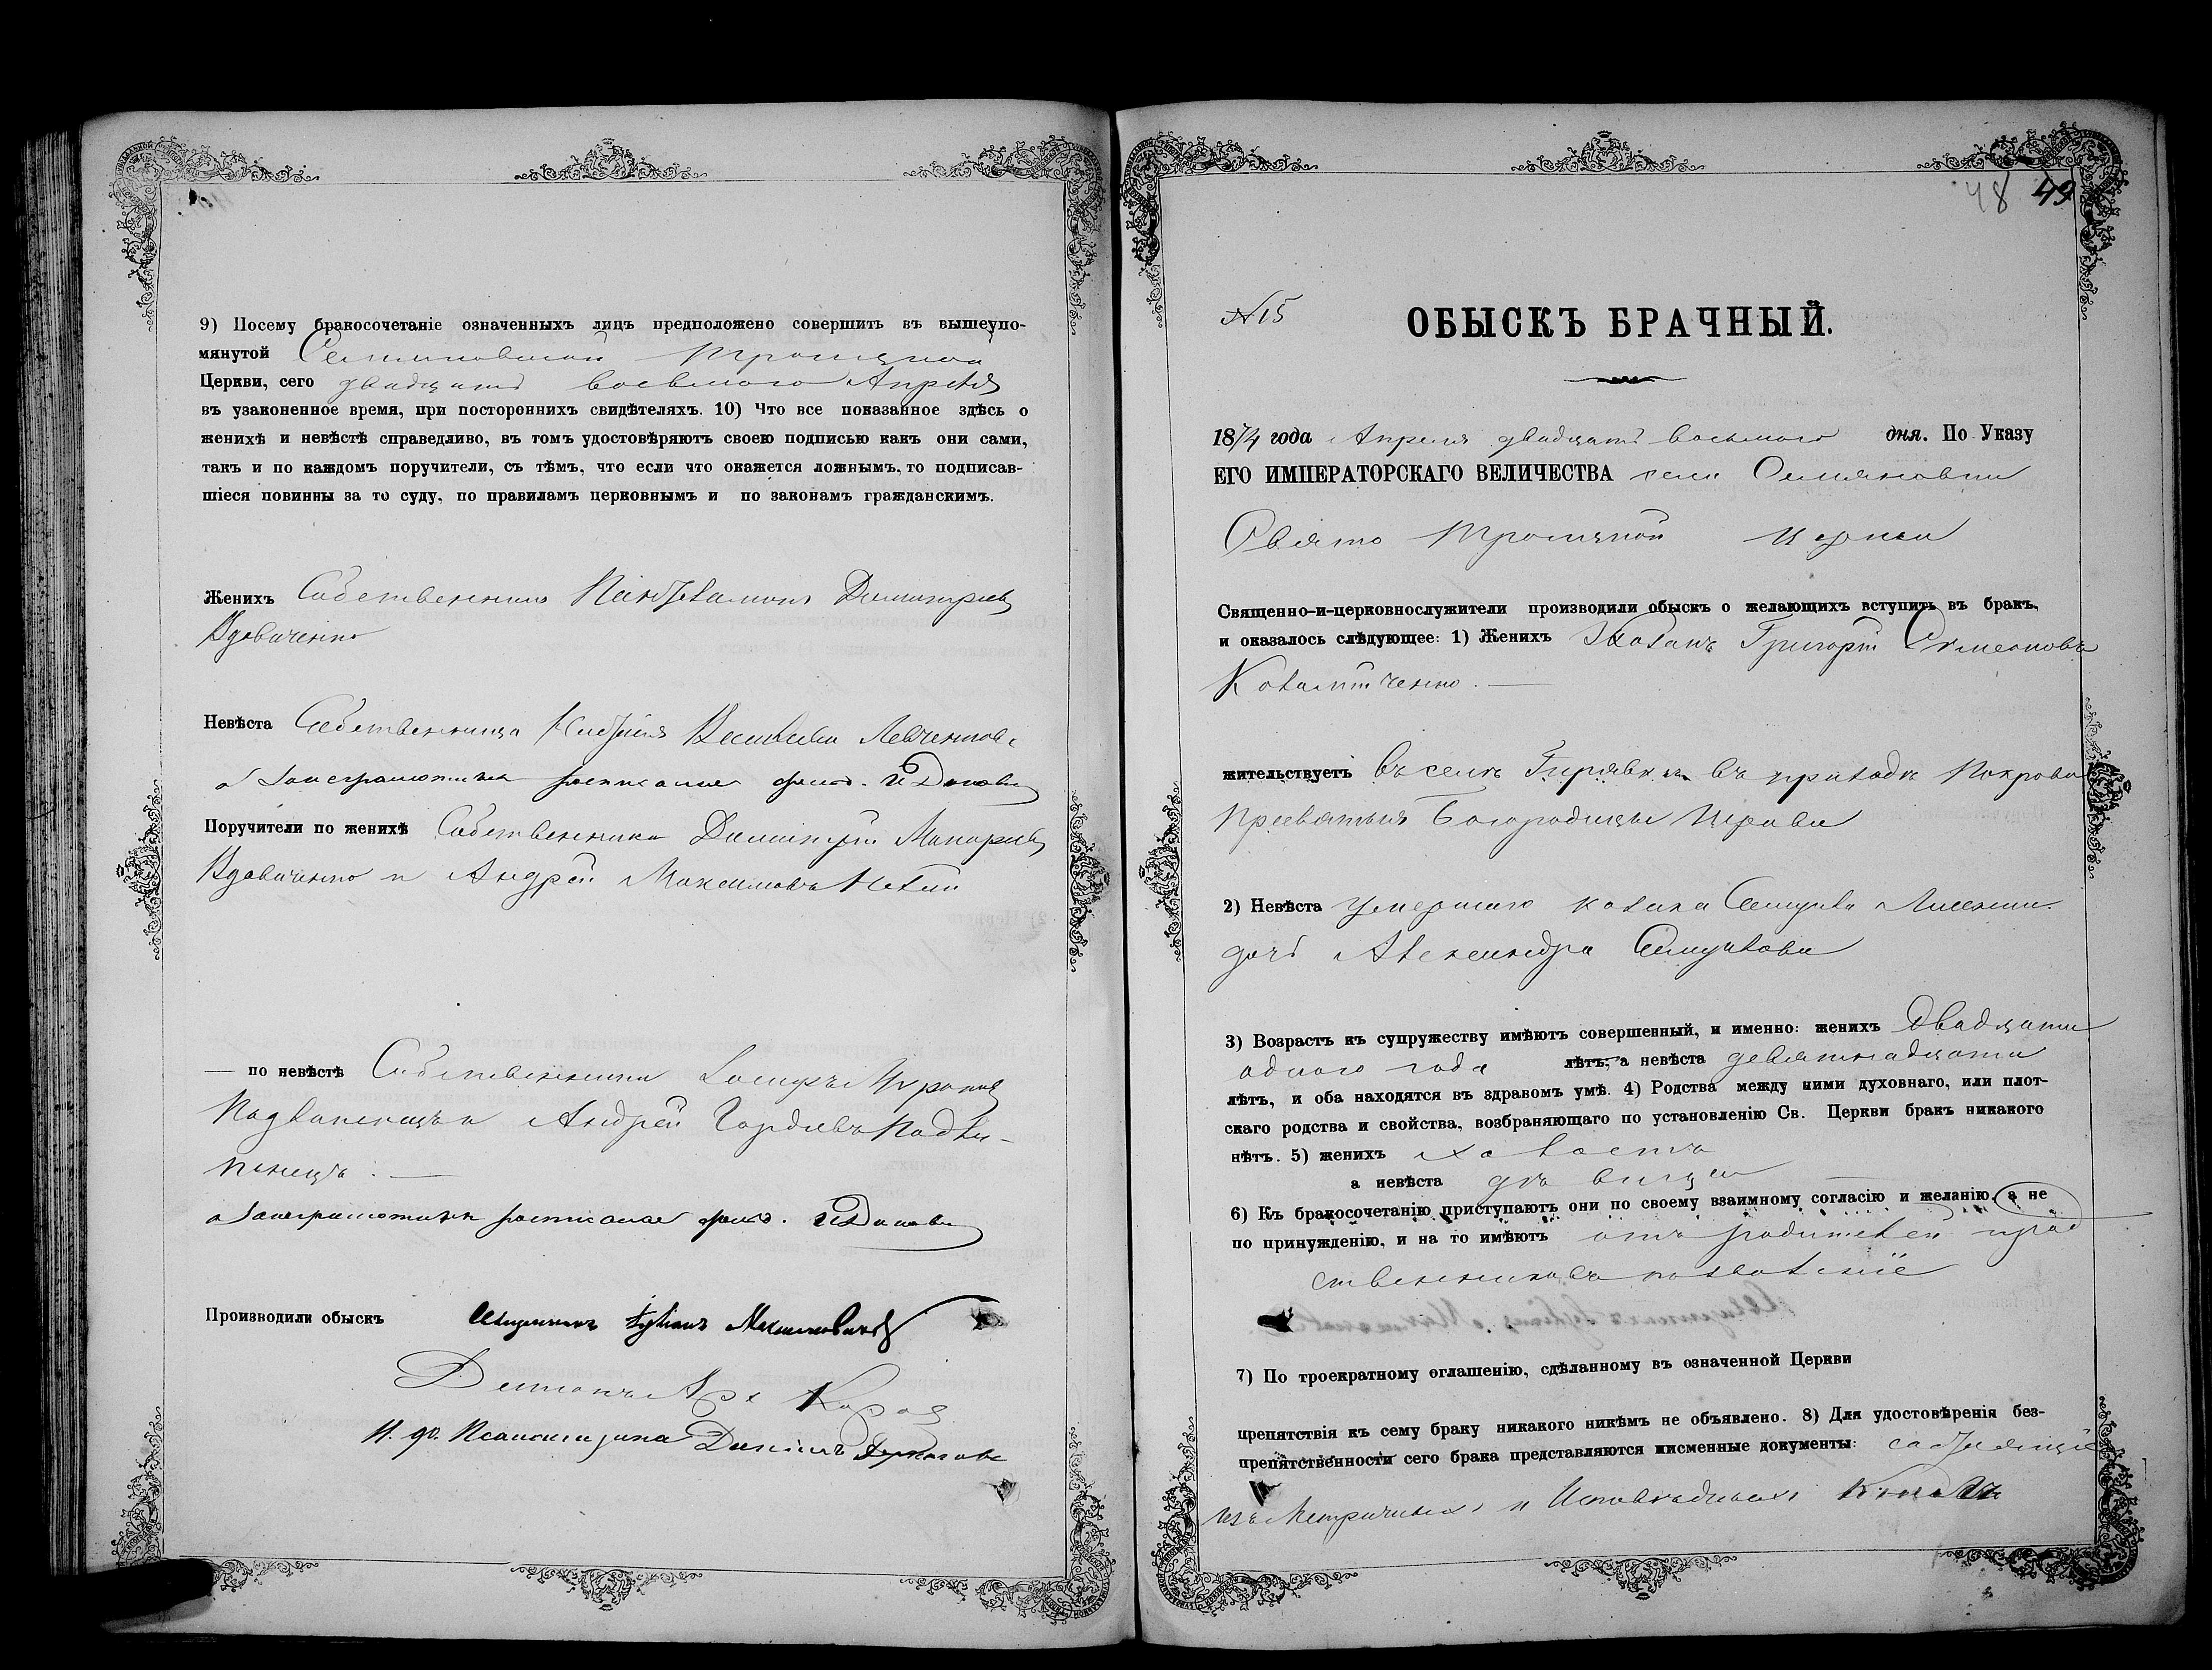 9) Посему бракосочетаніе означенныхъ лицъ предположено совершить въ вышеупо-
мянутой Семяновской Троицкой
Церкви, сего двадцать восьмого Апрѣля
въ узаконенное время, при постороннихъ свидѣтеляхъ. 10) Что все показанное здѣсь о
женихѣ и невѣстѣ справедливо, въ томъ удостовѣряютъ своею подписью какъ они сами,
такъ и по каждомъ поручители, съ тѣмъ, что если что окажется ложнымъ, то подписав-
шіеся повинны за то суду, по правиламъ церковнымъ и по законамъ гражданскимъ.
Женихъ Собственникъ Димитріевъ
Вдовиченко
Невѣста Собственница Левченкова
а за неграмотныхъ росписался
Поручители по женихѣ Собственники Димитрій Макаріевъ
Вдовиченко и Андрей Максимовъ
— по невѣстѣ Собственники
Андрей Гордѣевъ
а за неграмотныхъ росписался
Производили обыскъ Священникъ
И. д. Псаломщика Даніилъ
48 49
№ 15
ОБЫСКЪ БРАЧНЫЙ.
1874 года Апреля двадцать восьмого дня. По Указу
ЕГО ИМПЕРАТОРСКАГО ВЕЛИЧЕСТВА села Семяновки
Свято Троицкой церкви
Священно-и-церковнослужители производили обыскъ о желающихъ вступить въ бракъ,
и оказалось слѣдующее: 1) Женихъ Козакъ Григорій Симеоновъ
Ковалитченко. —
жительствуетъ въ селѣ Гирявкѣ въ приходѣ Покрова
Пресвятыя Богородицы Церкви
2) Невѣста умершаго козака Самуила
дочь Александра Самуилова
3) Возрастъ къ супружеству имѣютъ совершенный, и именно: женихъ Двадцати
одного года лѣтъ, а невѣста девятнадцати
лѣтъ, и оба находятся въ здравомъ умѣ. 4) Родства между ними духовнаго, или плот-
скаго родства и свойства, возбраняющаго по установленію Св. Церкви бракъ никакого
нѣтъ. 5) женихъ холостъ
а невѣста дѣвица
6) Къ бракосочетанію приступаютъ они по своему взаимному согласію и желанію, а не
по принужденію, и на то имѣютъ отъ родителей и род
ственниковъ позволеніе
7) По троекратному оглашенію, сдѣланному въ означенной Церкви
препятствія къ сему браку никакого никѣмъ не объявлено. 8) Для удостовѣренія без-
препятственности сего брака представляются письменные документы:
изъ Метричныхъ и Исповѣдныхъ Книгъ